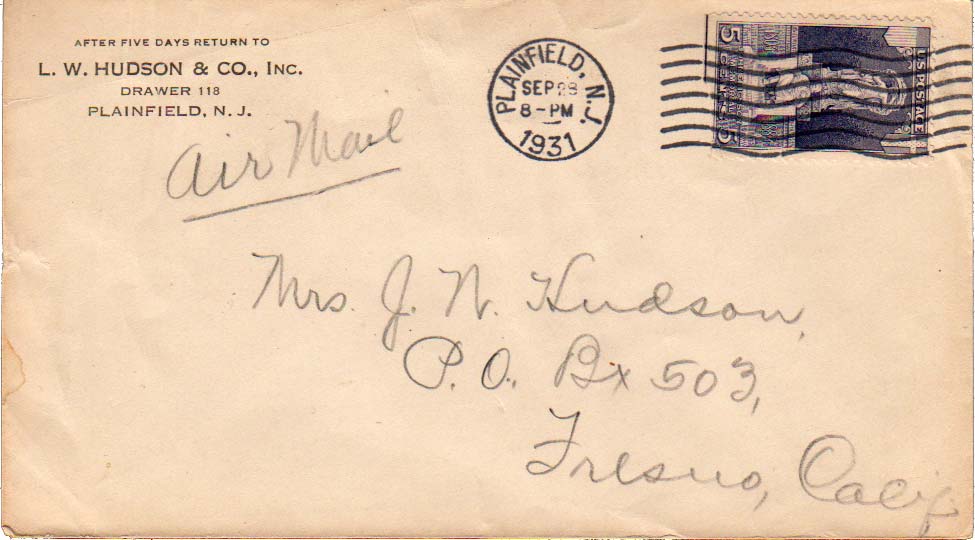 AFTER FIVE DAYS RETURN TO
L. W. HUDSON & CO., INC.
DRAWER 118
PLAINFIELD, N. J.
PLAINFIELD, N.J.
SEP 28
8-PM
1931
U.S. POSTAGE
5 CENTS 5
Air Mail
Mrs. J. N. Hudson,
P. O. Bx 503,
Fresno, Calif